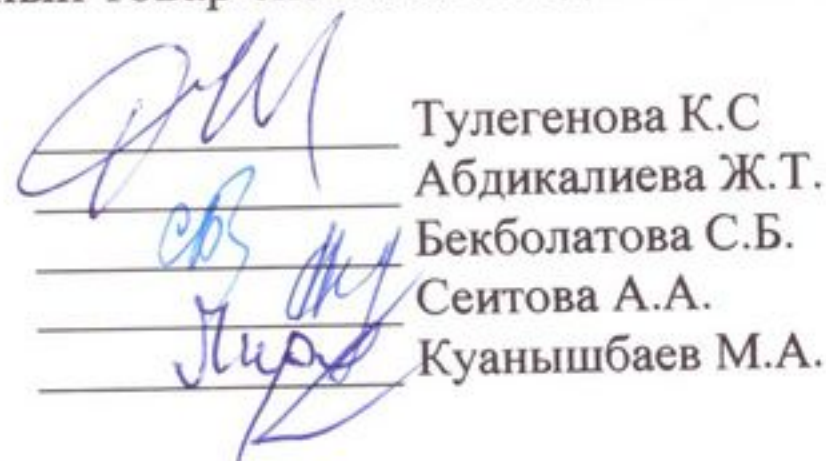 товар
Тулегенова К.С
Абдикалиева Ж.Т.
Бекболатова С.Б.
Сеитова А.А.
Куанышбаев М.А.